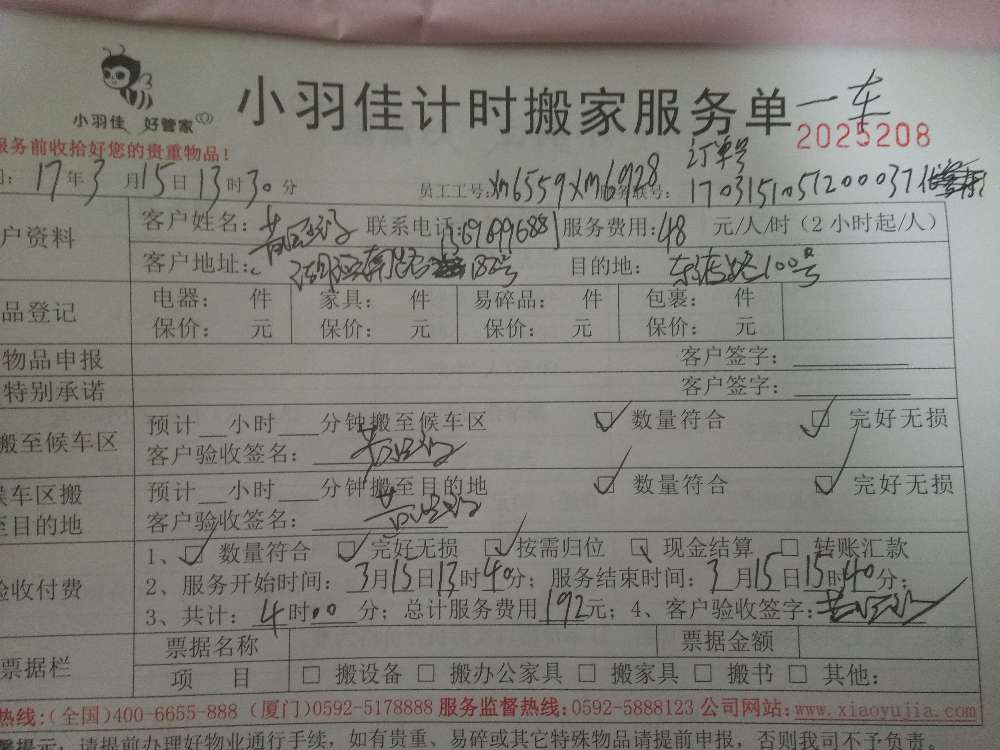 小羽佳 好管家
小羽佳计时搬家服务单 一车
2025208
服务前收拾好您的贵重物品！
订单号
17年3月15日13时30分 员工工号:xm6559 xm6928 联号: 17031510512000371
户资料 客户姓名: 联系电话: 服务费用:48 元/人/时（2小时起/人）
客户地址: 182号 目的地: 100号
品登记 电器： 件 家具： 件 易碎品： 件 包裹： 件
保价： 元 保价： 元 保价： 元 保价： 元
物品申报 客户签字：
特别承诺 客户签字：
搬至候车区 预计__小时___分钟搬至候车区 ☑ 数量符合 ☑ 完好无损
客户验收签名：
候车区搬 预计__小时___分钟搬至目的地 ☑ 数量符合 ☑ 完好无损
至目的地 客户验收签名：
验收付费 1、☑ 数量符合 ☑ 完好无损 ☑ 按需归位 ☑ 现金结算 □ 转账汇款
2、服务开始时间：3月15日13时40分；服务结束时间：3月15日15时40分；
3、共计：4时00分；总计服务费用192元；4、客户验收签字:
票据栏 票据名称 票据金额
项 目 □ 搬设备 □ 搬办公家具 □ 搬家具 □ 搬书 □ 其他:
热线:(全国)400-6655-888 (厦门)0592-5178888 服务监督热线:0592-5888123 公司网站:www.xiaoyujia.com
提示：请提前办理好物业通行手续，如有贵重、易碎或其它特殊物品请提前申报，否则我司不予负责。